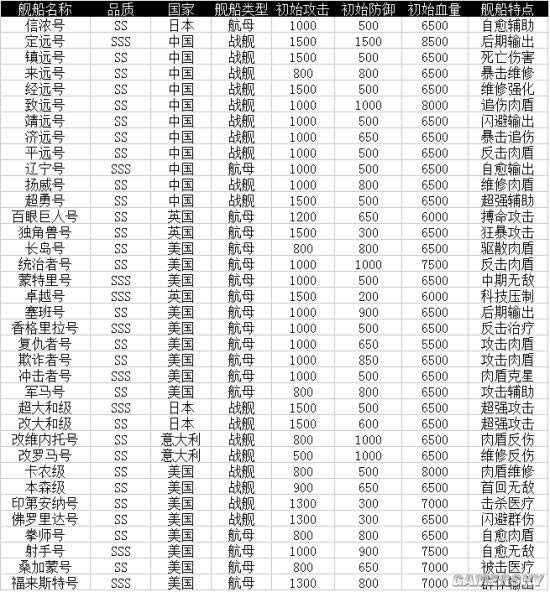 舰船名称 品质 国家 舰船类型 初始攻击 初始防御 初始血量 舰船特点
信浓号 SS 日本 航母 1000 500 6500 自愈辅助
定远号 SSS 中国 战舰 1500 1500 8500 后期输出
镇远号 SS 中国 战舰 1500 500 6500 死亡伤害
来远号 SS 中国 战舰 800 800 6500 暴击维修
经远号 SS 中国 战舰 1500 500 6500 维修强化
致远号 SS 中国 战舰 1000 1000 8000 追伤肉盾
靖远号 SS 中国 战舰 1000 500 6500 闪避输出
济远号 SS 中国 战舰 1000 650 6500 暴击追伤
平远号 SS 中国 战舰 1000 500 6500 反击肉盾
辽宁号 SSS 中国 航母 1000 500 6500 自愈输出
扬威号 SS 中国 战舰 1000 800 6500 维修肉盾
超勇号 SS 中国 战舰 1500 500 6500 超强辅助
百眼巨人号 SS 英国 航母 1200 650 6000 搏命攻击
独角兽号 SS 英国 航母 1500 300 6500 狂暴攻击
长岛号 SS 美国 航母 800 800 6500 驱散肉盾
统治者号 SS 美国 航母 1000 1000 7500 反击肉盾
蒙特里号 SSS 美国 航母 1000 500 6500 中期无敌
卓越号 SSS 英国 航母 1500 200 6000 科技压制
塞班号 SS 美国 航母 1000 900 6500 后期输出
香格里拉号 SSS 美国 航母 1000 500 6500 反击治疗
复仇者号 SS 美国 航母 1000 650 5500 攻击肉盾
欺诈者号 SS 美国 航母 1000 850 6500 攻击肉盾
冲击者号 SSS 美国 航母 1000 500 6500 肉盾克星
军马号 SS 美国 航母 800 800 6500 攻击辅助
超大和级 SSS 日本 战舰 1500 500 6500 超强攻击
改大和级 SS 日本 战舰 1500 600 6500 超强攻击
改维内托号 SS 意大利 战舰 800 1000 6500 肉盾反伤
改罗马号 SS 意大利 战舰 500 1000 6500 维修反伤
卡农级 SS 美国 战舰 800 500 8000 肉盾维修
本森级 SS 美国 战舰 900 650 6500 首回无敌
印第安纳号 SS 美国 战舰 1300 300 7000 击杀医疗
佛罗里达号 SS 美国 战舰 1300 300 6500 闪避群伤
拳师号 SS 美国 航母 800 800 6500 自愈肉盾
射手号 SSS 美国 航母 1000 900 7500 自愈无敌
桑加蒙号 SS 美国 航母 800 650 7000 被击医疗
福来斯特号 SSS 美国 航母 1300 800 7000 群体输出
GAMERSKY